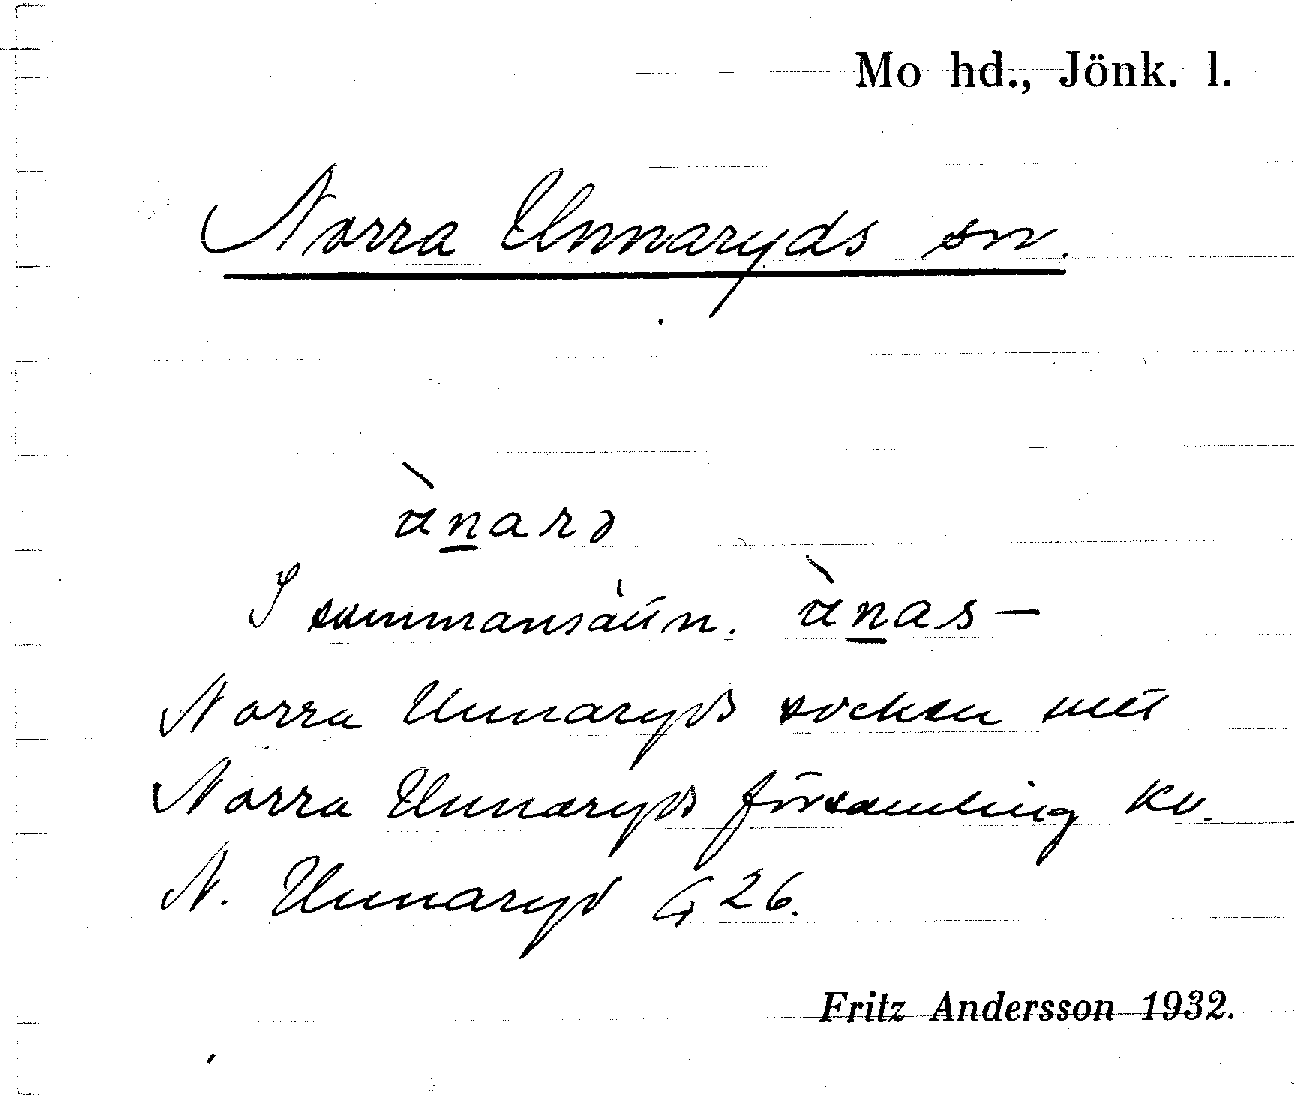 Mo hd., Jönk. l.
Norra Unnaryds sn.
ùnard
I sammansättn. ùnas—
Norra Unnaryds socken med
Norra Unnaryds församling kv.
N. Unnaryd G 26.
Fritz Andersson 1932.